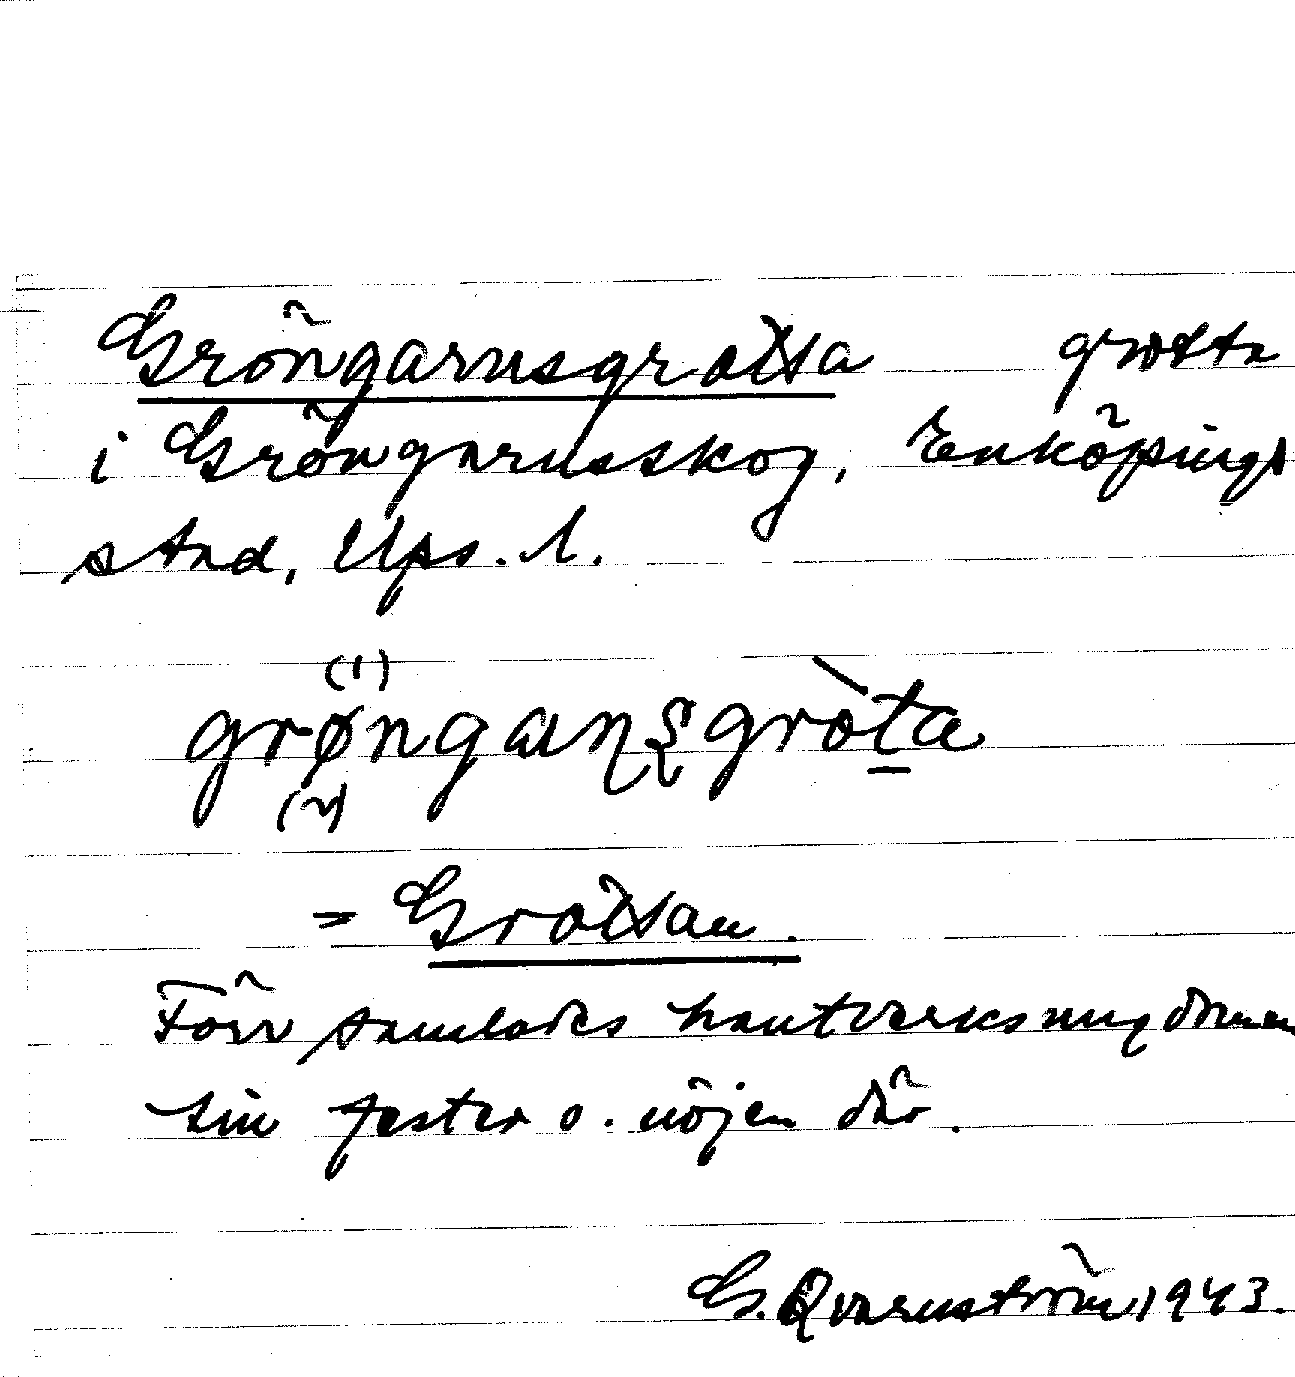 Gröngarnsgrottan grotta
i Gröngarnsskog, Enköpings
stad, Ups. l.
(1)
grøngaɳʂgròta
(2)
= Grottan.
Förr samlades hantverksungdomen
sin fester o. nöjen där.
G. Qvarnström 1943.